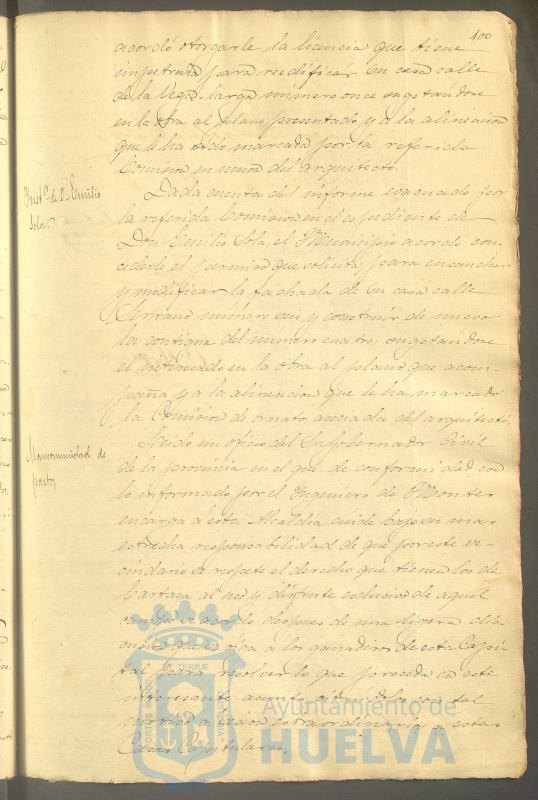 100
acordó otorgarle la licencia que tiene
impetrada para reedificar su casa calle
de la Vega-larga número once sugetandose
en la obra al plano presentado y a la alineacion
que le ha sido marcada por la referida
Comision en union del arquitecto.
Inst.ª de D. Emilio
Sola
Dada cuenta del informe evacuado por
la referida Comision en el espediente de
Don Emilio Sola, el Municipio acordo con-
cederle el permiso que solicita para ensanchar
y modificar la fachada de su casa calle
número seis y construir de nuevo
la contigua del numero cuatro, sugetandose
el interesado en la obra al plano que acom-
paña y a la alineacion que le ha marcado
la Comision de ornato, asociada del arquitecto.
Mancomunidad de
pastos
Leido un oficio del Sr. Gobernador Civil
de la provincia en el que de conformidad con
lo informado por el Ingeniero de Montes
encarga á esta Alcaldia cuide bajo su mas
estrecha responsabilidad de que por este ve-
cindario se respete el derecho que tienen los de
Cartaya al uso y disfrute esclusivo de aquel
campo se acordó despues de una ligera dis-
cusion que se oiga á los ganaderos de esta Capi-
tal para resolver lo que proceda en este
interesante asunto
estraordinaria á estas
Casas Capitulares.
PORTUS MARIS
ET TERRÆ
CUSTODIA
Ayuntamiento de
HUELVA